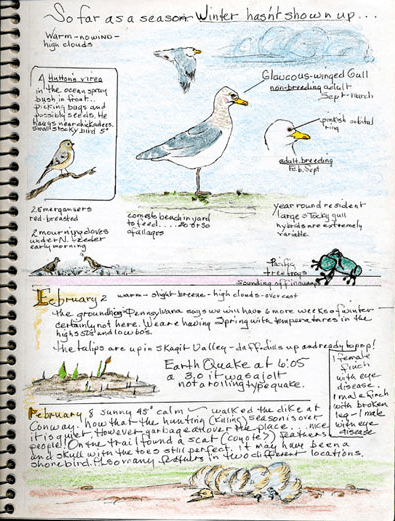 So far as a season Winter hasn't shown up...
Warm - no wind -
high clouds
A Hutton's vireo
in the ocean spray
bush in front...
picking bugs and
possibly seeds. He
hangs near chickadees.
small stocky bird 5"
Glaucous-winged Gull
non-breeding adult
Sept - March
pinkish orbital
ring
adult breeding
Feb. Sept
mergansers
red-breasted
2 mourning doves
under N. feeder
early morning
comes to beach in yard
to feed... 20 or so
of all ages
year round resident
large stocky gull
hybrids are extremely
variable
Pacific
tree frogs
sounding off in
February 2 warm - slight breeze - high clouds - overcast
the groundhog Pennsylvania says we will have 6 more weeks of winter
certainly not here. We are having Spring with temperatures in the
high 50s and low 60s.
the tulips are up in Skagit Valley - daffodills up and ready to pop!
Earth Quake at 6:05
a 3.0 it was a jolt
not a rolling type quake.
1 female
finch
with eye
disease.
1 male finch
with broken
leg - 1 male
with eye
disease
February 8 sunny 45° calm walked the dike at
Conway. now that the hunting (killing) season is over
it is quiet however garbage all over the place... nice
people! On the trail found a scat (coyote?) feathers
and skull with the toes still perfect. it may have been a
shorebird. Also many feathers in two different locations.